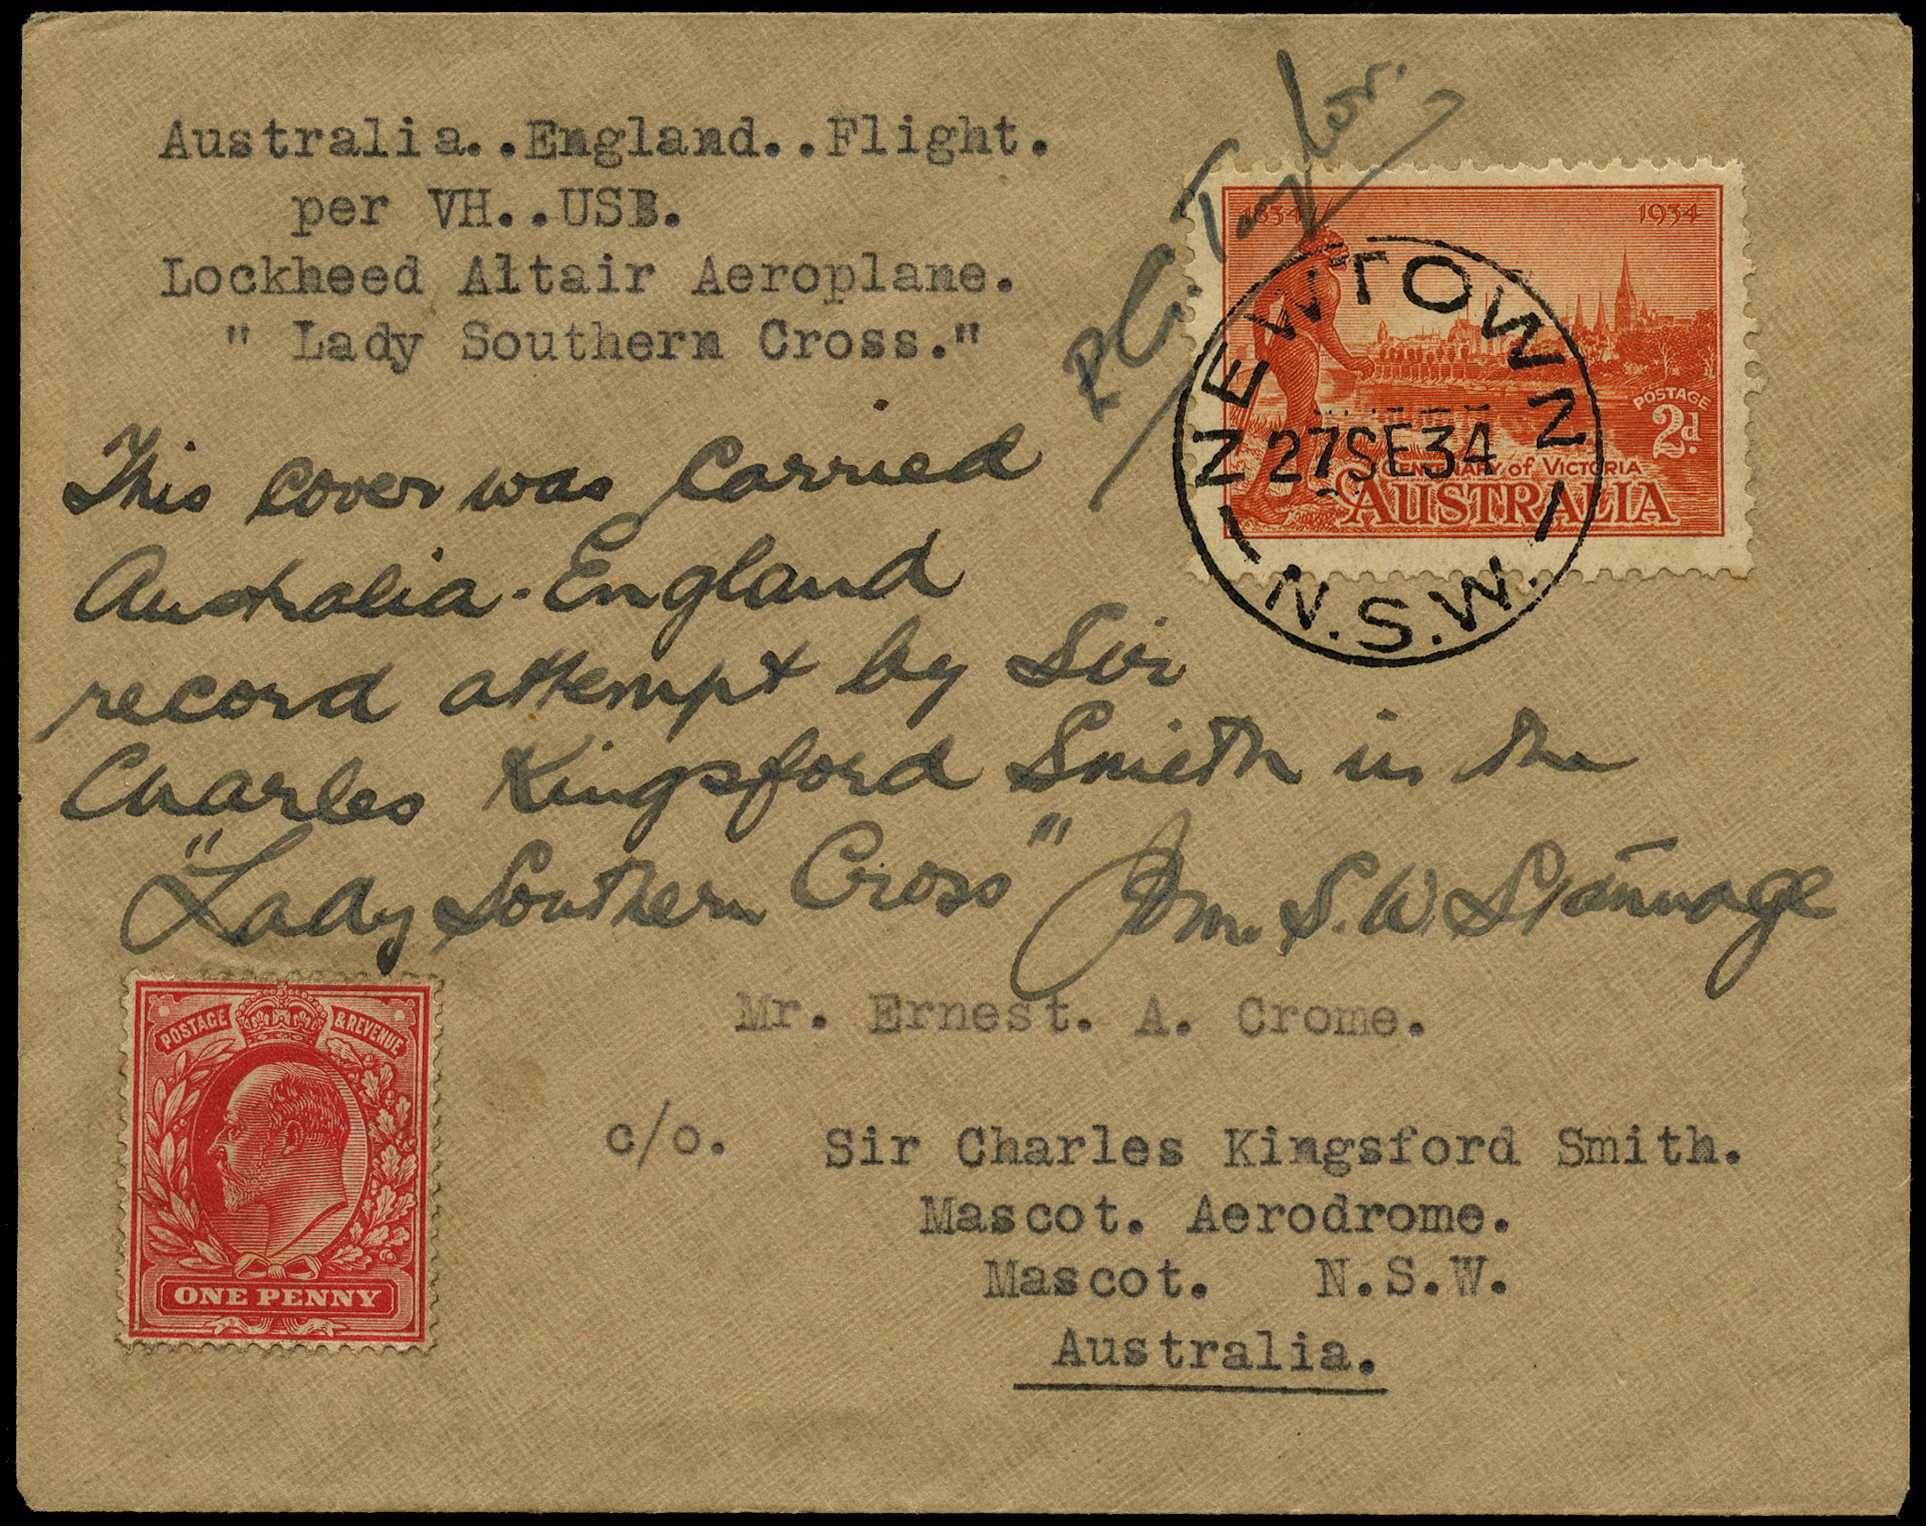 Australia..England..Flight.
per VH..USB.
Lockheed Altair Aeroplane.
" Lady Southern Cross."
P.G. Taylor.
1834 1934
POSTAGE
2d.
CENTENARY of VICTORIA
AUSTRALIA
NEWTOWN
27SE34
N.S.W.
This cover was carried
Australia-England
record attempt by Sir
Charles Kingsford Smith in the
"Lady Southern Cross" Jm. S. W. Stannage
POSTAGE & REVENUE
ONE PENNY
Mr. Ernest. A. Crome.
c/o. Sir Charles Kingsford Smith.
Mascot. Aerodrome.
Mascot. N.S.W.
Australia.